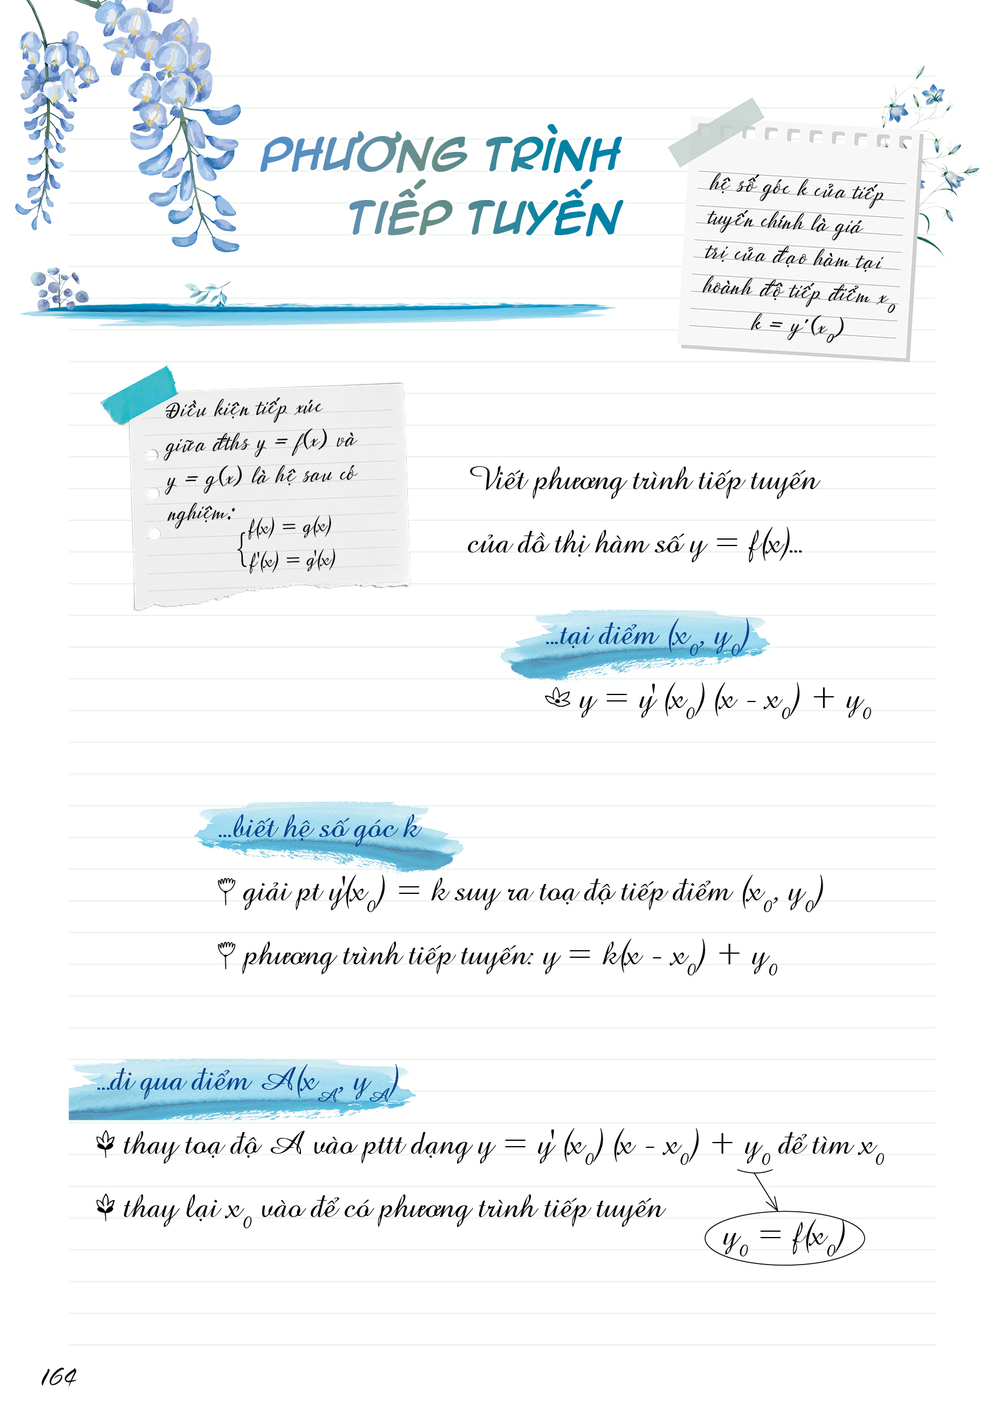 PHƯƠNG TRÌNH
TIẾP TUYẾN
hệ số góc k của tiếp
tuyến chính là giá
trị của đạo hàm tại
hoành độ tiếp điểm x₀
k = y'(x₀)
Điều kiện tiếp xúc
giữa đths y = f(x) và
y = g(x) là hệ sau có
nghiệm:
{ f(x) = g(x)
f'(x) = g'(x)
Viết phương trình tiếp tuyến
của đồ thị hàm số y = f(x)...
...tại điểm (x₀, y₀)
y = y'(x₀)(x - x₀) + y₀
...biết hệ số góc k
giải pt y'(x₀) = k suy ra toạ độ tiếp điểm (x₀, y₀)
phương trình tiếp tuyến: y = k(x - x₀) + y₀
...đi qua điểm A(x_A, y_A)
thay toạ độ A vào pttt dạng y = y'(x₀)(x - x₀) + y₀ để tìm x₀
thay lại x₀ vào để có phương trình tiếp tuyến
y₀ = f(x₀)
164